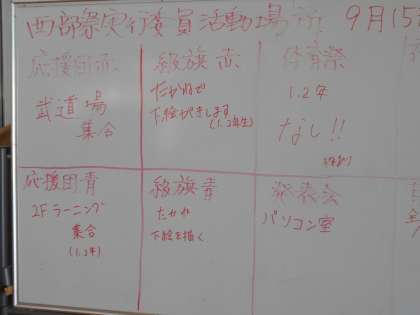 西部祭実行委員活動場所 9月15
応援団赤
武道場
集合
級旗赤
たかねで
下絵がきします
(1.2年生)
体育祭
1.2年
なし!!
応援団青
2Fラーニング
集合
(1.2年)
級旗青
たかね
下絵を描く
発表会
パソコン室